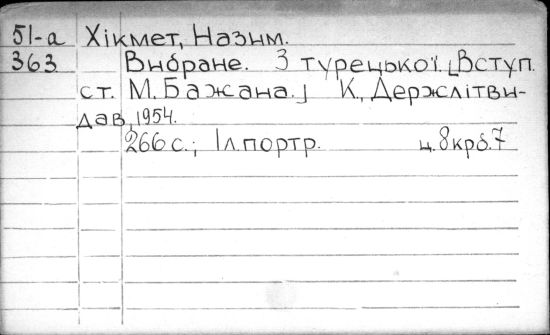 51-а Хікмет, Назим.
363 Вибране. З турецької. [Вступ.
ст. М. Бажана.] К., Держлітви-
дав, 1954.
266 с.; Іл. портр. ц. 8 крб. 7